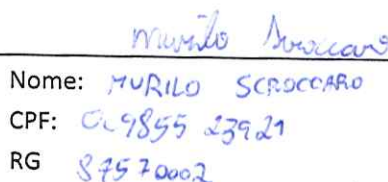 Murilo Scroccaro
Nome: MURILO SCROCCARO
CPF: 009855 23921
RG 87570002